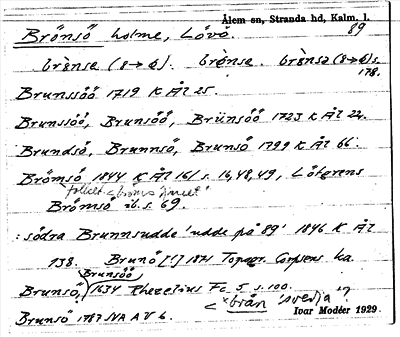 Ålem sn, Stranda hd, Kalm. l.
Brönsö holme, Lövö. 89
brònse brònse
178.
Brunssöö 1719 K Ål 25
Brunssöö, Brunsöö, Brünsöö 1723 K Ål 22.
Brundsö, Brunnsö, Brunsö 1799 K Ål 66.
Brömsö 1844 K Ål 161 s. 16, 48, 49, Lötgrens
Brömsö ib. s. 69.
: södra Brunnsudde 'udde på 89' 1846 K Ål
138. Brunö [!] 1871 Topogr. Corpsens ka.
Brunsöö
Brunsö, 1634 Rhezelius Fc 5 s. 100.
< *brån 'svedja'?
Brunsö 1787 NA A V 6. Ivar Modéer 1929.